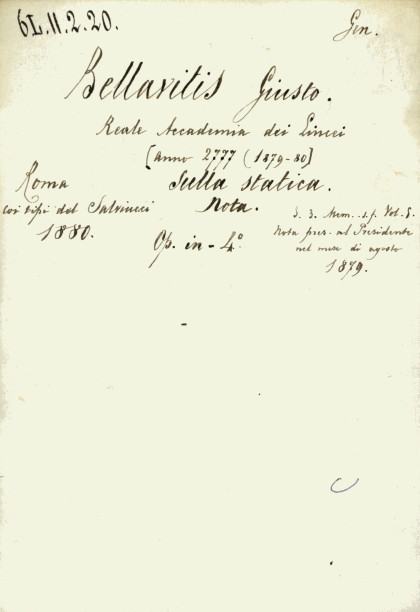 6L.11.2.20.
Gen.
Bellavitis Giusto.
Reale Accademia dei Lincei
[anno 2777 (1879-80]
Roma
Sulla statica.
coi tipi del Salviucci
Nota.
S. 3. Mem. s.f. Vol. 5.
1880.
Op. in-4º.
Nota pres. al Presidente
nel mese di agosto
1879.